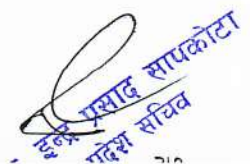 इन्द्र प्रसाद सापकोटा
प्रदेश सचिव